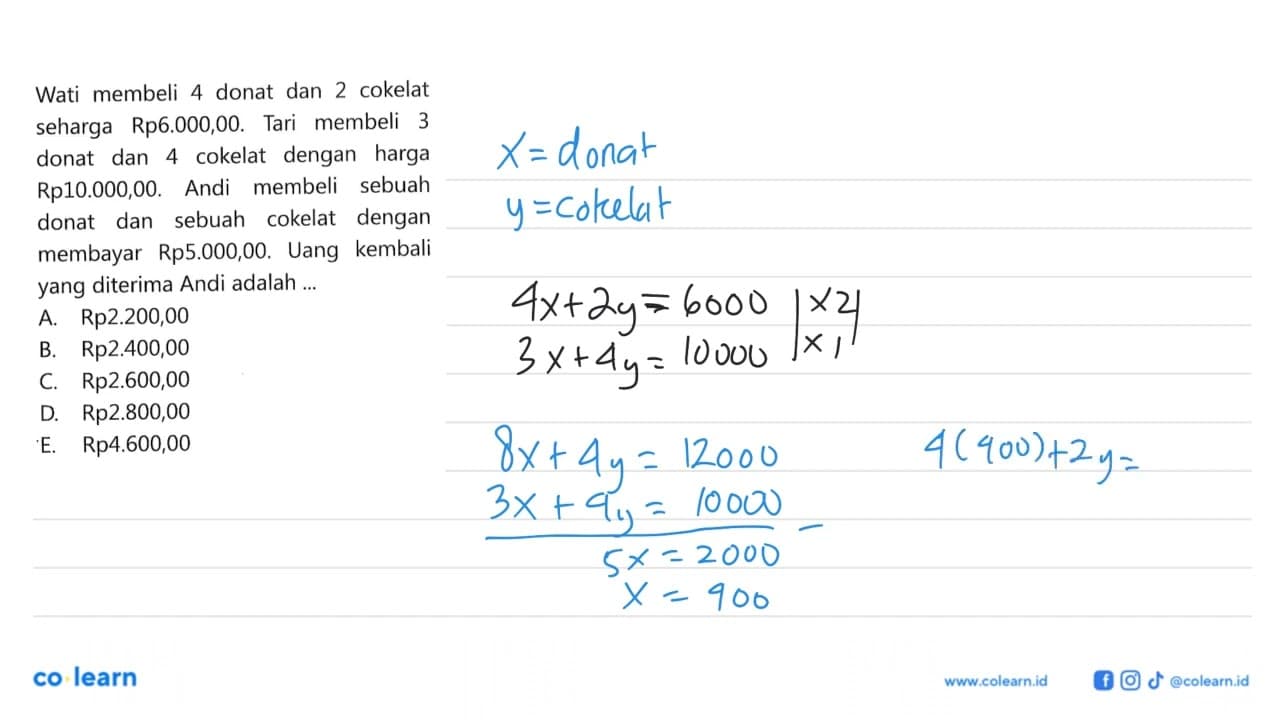 Wati membeli 4 donat dan 2 cokelat
seharga Rp6.000,00. Tari membeli 3
donat dan 4 cokelat dengan harga
Rp10.000,00. Andi membeli sebuah
donat dan sebuah cokelat dengan
membayar Rp5.000,00. Uang kembali
yang diterima Andi adalah ...
A. Rp2.200,00
B. Rp2.400,00
C. Rp2.600,00
D. Rp2.800,00
E. Rp4.600,00
x = donat
y = cokelat
4x + 2y = 6000 | x2 |
3x + 4y = 10000 | x1 |
8x + 4y = 12000
3x + 4y = 10000 -
5x = 2000
x = 400
4(400) + 2y =
co learn
www.colearn.id
@colearn.id